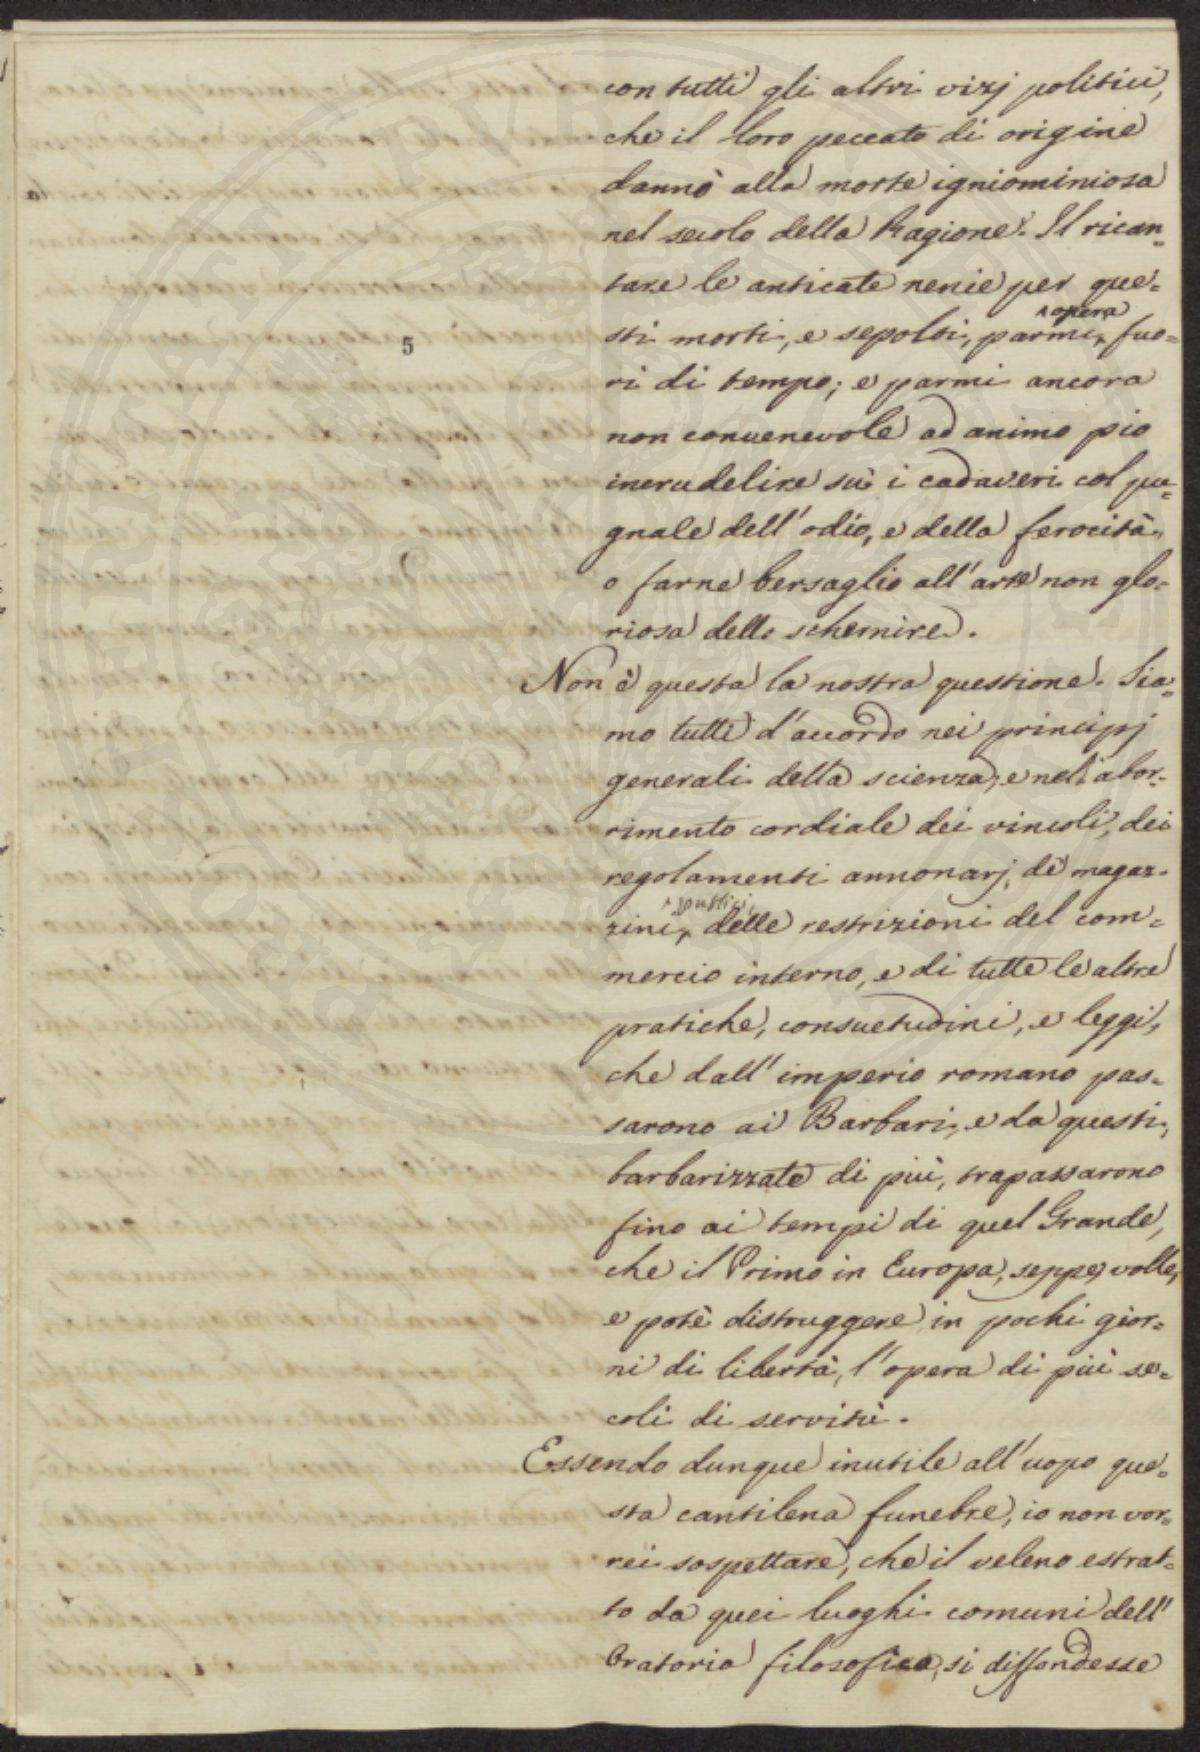 con tutti gli altri vizj politici,
che il loro peccato di origine
dannò alla morte igniominiosa
nel secolo della Ragione. Il rican-
tare le anticate nenie per que-
sti morti, e sepolti, parmi opera fuo-
ri di tempo; e parmi ancora
5
non convenevole ad animo pio
incrudelire sù i cadaveri col pu-
gnale dell' odio, e della ferocità,
o farne bersaglio all' arte non glo-
riosa dello schernire.
Non è questa la nostra questione. Sia-
mo tutti d'accordo nei principj
generali della scienza, e nell' abor-
rimento cordiale dei vincoli, dei
regolamenti annonarj, de magaz-
zini pubblici, delle restrizioni del com-
mercio interno, e di tutte le altre
pratiche, consuetudini, e leggi,
che dall' imperio romano pas-
sarono ai Barbari, e da questi,
barbarizzate di più, trapassarono
fino ai tempi di quel Grande,
che il Primo in Europa, seppe, volle,
e potè distruggere in pochi gior-
ni di libertà, l'opera di più se-
coli di servitù.
Essendo dunque inutile all' uopo que-
sta cantilena funebre, io non vor-
rei sospettare, che il veleno estrat-
to da quei luoghi comuni dell'
Oratoria filosofica, si diffondesse